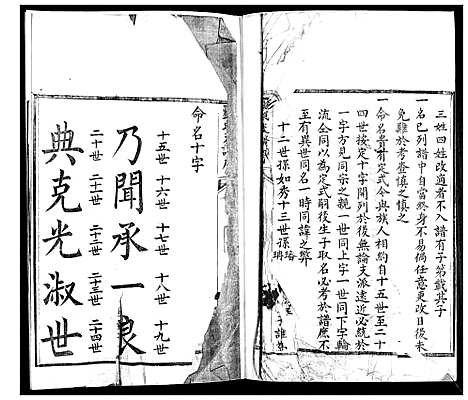 三姓四姓改適者不入譜有子第載其子
一名已列譜中自當終身不易倘任意更改日後未
免難於考查慎之慎之
一命名貴有定式今與族人相約自十五世至二十
四世接定十字開列於後無論支派遠近必統於
一字方見同宗之親一世同上字一世同下字輪
流仝同以為定式嗣後生子取名必考於譜庶不
至有異世同名一時同諱之弊
十二世孫如秀十三世孫
命名十字
十五世 十六世 十七世 十八世 十九世
乃聞承一良
二十世 二十一世 二十二世 二十三世 二十四世
典克光淑世